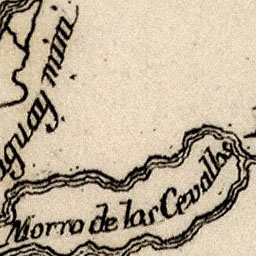 guay mini
Morro de las Cevallos